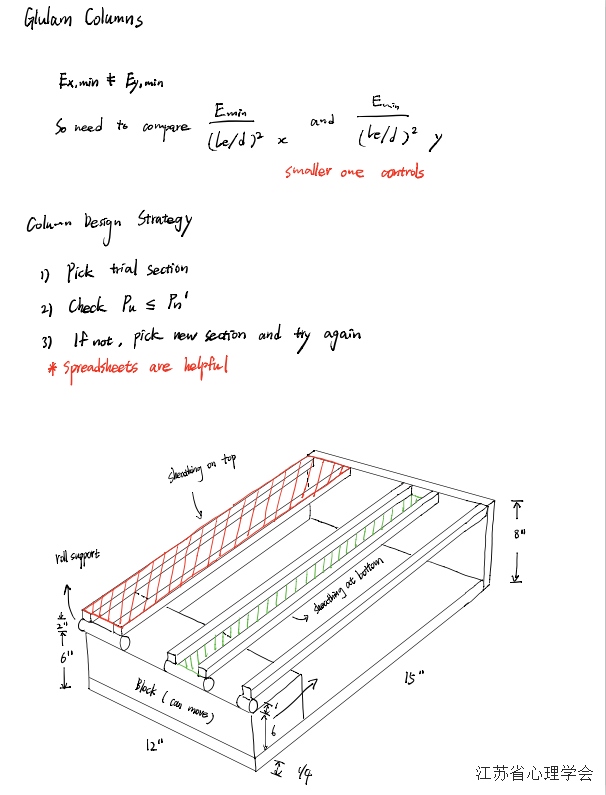 Glulam Columns
Ex,min ≠ Ey,min
So need to compare Emin/(Le/d)² x and Emin/(Le/d)² y
smaller one controls
Column Design Strategy
1) Pick trial section
2) Check Pu ≤ Pn'
3) If not, pick new section and try again
* Spreadsheets are helpful
sheathing on top
roll support
8"
2"
6"
sheathing at bottom
Block (can move)
15"
1"
6
12"
1/4
江苏省心理学会